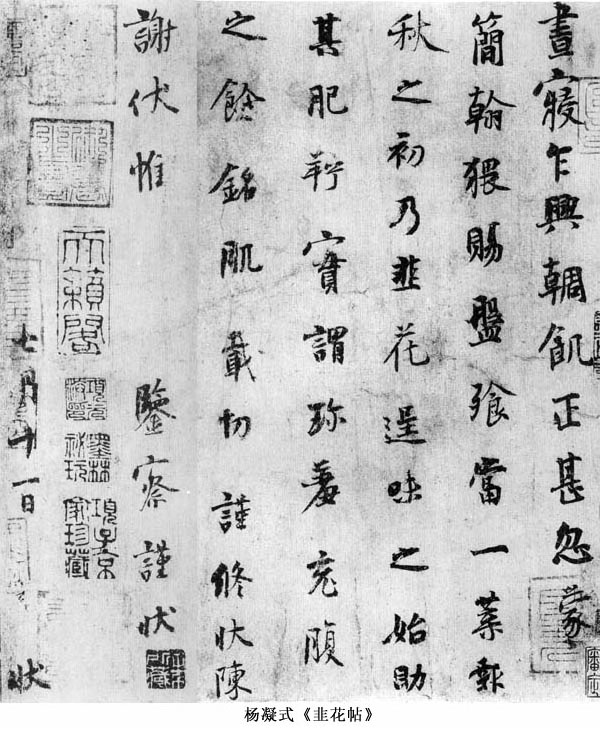 晝寢乍興輖飢正甚忽蒙
簡翰猥賜盤飧當一葉報
秋之初乃韭花逞味之始助
其肥羜實謂珍羞充腹
之餘銘肌載切謹修狀陳
謝伏惟鑒察謹狀
七月十一日狀
天籟閣
墨林祕玩
項子京家珍藏
杨凝式《韭花帖》